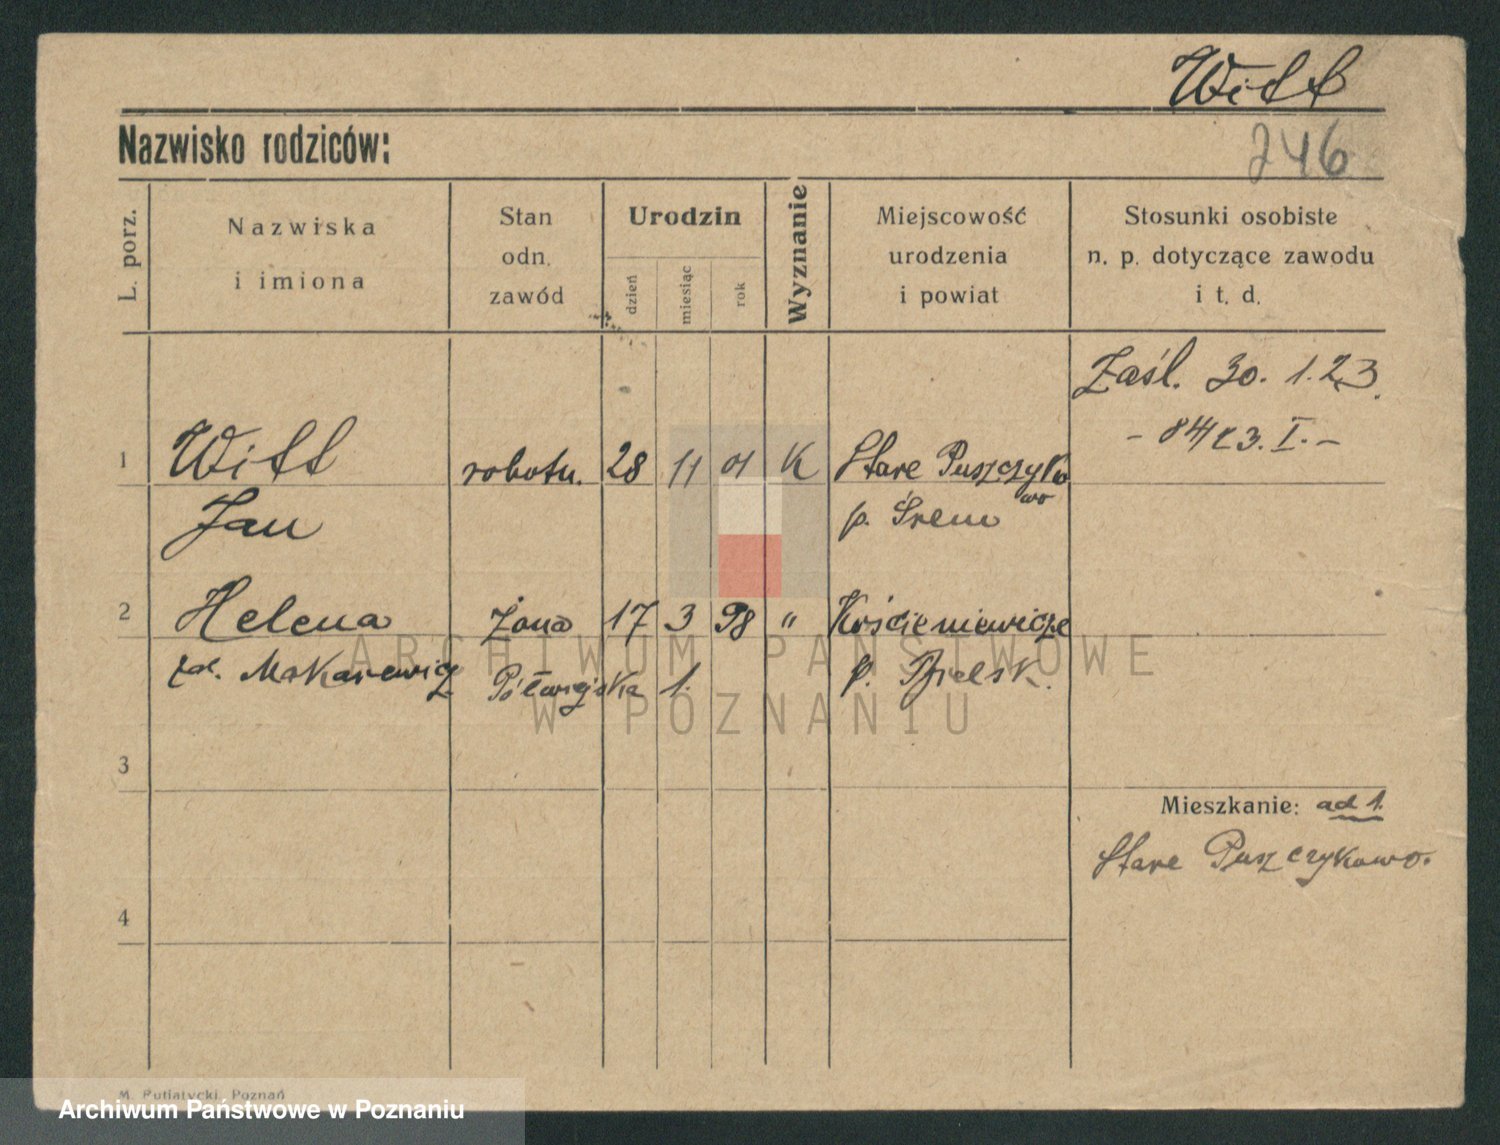 Witt
Nazwisko rodziców:
246
L. porz.
Nazwiska
i imiona
Stan
odn.
zawód
Urodzin
dzień
miesiąc
rok
Wyznanie
Miejscowość
urodzenia
i powiat
Stosunki osobiste
n. p. dotyczące zawodu
i t. d.
Zaśl. 30. 1. 23.
1 Witt robotn. 28 11 01 K Stare Puszczyko
wo
Jan p. Śrem
2 Helena żona 17 3 98 " Kościeniewicze
zd. Makarewicz Półwiejska 1. p. Bielsk.
3
Mieszkanie: ad 1.
Stare Puszczykowo.
4
M. Putiatycki, Poznań
ARCHIWUM PAŃSTWOWE
W POZNANIU
Archiwum Państwowe w Poznaniu